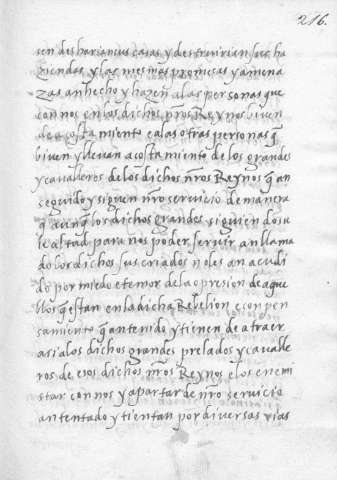 216.
sen desharian sus casas y destruirien sus ha
ziendas y las mesmas promesas y amena
zas an hecho y hazen a las personas que
con nos en los dichos nros Reynos biven
de acostamiento e a las otras personas q̃
biven y llevan acostamiento de los grandes
y cavalleros de los dichos nr̃os Reynos q̃ an
seguido y siguen nr̃o servicio de manera
q̃ aunq̃ los dichos grandes siguiendo su
lealtad para nos poder servir an llama
do los dichos sus criados no les an acudi
do por miedo e temor de la opresion de aque
llos q̃ estan en la dicha Rebelion e con pen
samiento q̃ an tenido y tienen de atraer
asi a los dichos grandes prelados y cavalle
ros de esos dichos nr̃os Reynos e los enemi
star con nos y apartar de nr̃o servicio
an tentado y tientan por diversas vias